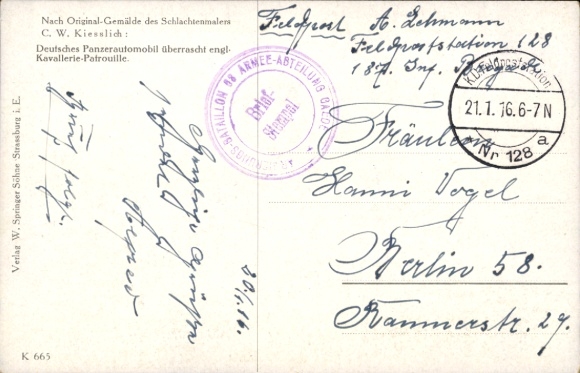 Nach Original-Gemälde des Schlachtenmalers
C. W. Kiesslich:
Deutsches Panzerautomobil überrascht engl.
Kavallerie-Patrouille.
Feldpost A. Lehmann
Feldpoststation 128
187. Inf. Brigade
BATAILLON 68 ARMEE-ABTEILUNG GAEDE
Brief-
Stempel
K.D. Feldpoststation
21.1.16. 6-7 N
a
Nr 128
Fräulein
Hanni Vogel
Berlin 58.
Kannerstr. 29.
20/1.16.
Grüße
Verlag W. Springer Söhne Strassburg i. E.
K 665